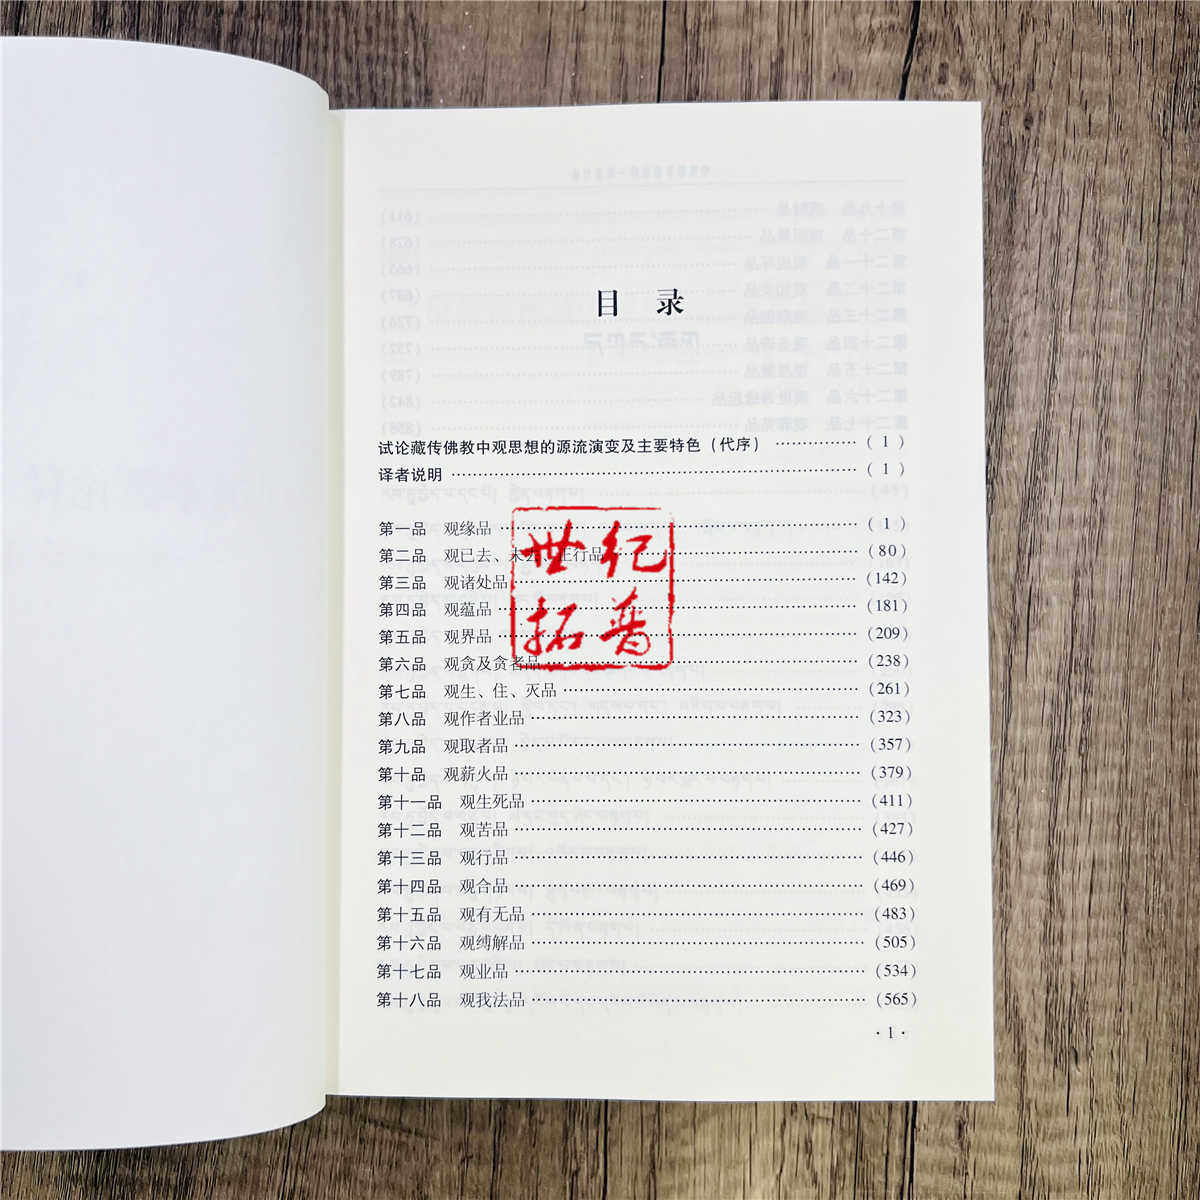 目 录
试论藏传佛教中观思想的源流演变及主要特色（代序） ……………（ 1 ）
译者说明 ……………（ 1 ）
第一品 观缘品 ……………（ 1 ）
第二品 观已去、未去、正行品 ……………（80）
第三品 观诸处品 ……………（142）
第四品 观蕴品 ……………（181）
第五品 观界品 ……………（209）
第六品 观贪及贪者品 ……………（238）
第七品 观生、住、灭品 ……………（261）
第八品 观作者业品 ……………（323）
第九品 观取者品 ……………（357）
第十品 观薪火品 ……………（379）
第十一品 观生死品 ……………（411）
第十二品 观苦品 ……………（427）
第十三品 观行品 ……………（446）
第十四品 观合品 ……………（469）
第十五品 观有无品 ……………（483）
第十六品 观缚解品 ……………（505）
第十七品 观业品 ……………（534）
第十八品 观我法品 ……………（565）
· 1 ·
世纪
拓普